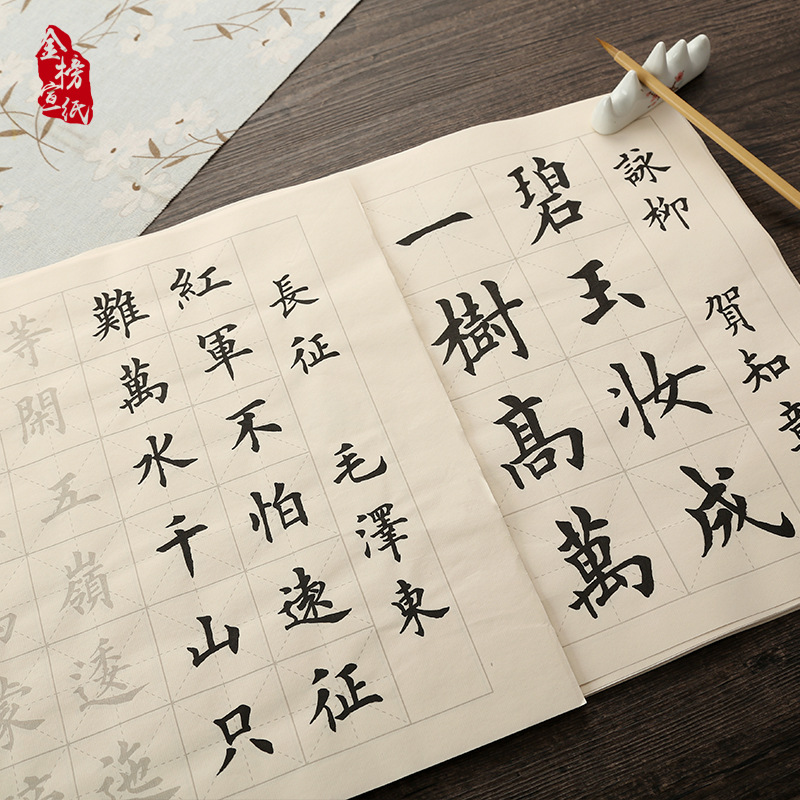 金榜
宣纸
詠柳 賀知章
碧玉妆成
一樹髙萬
長征 毛澤東
紅軍不怕遠征
難萬水千山只
等閑五嶺逶迤
蒙